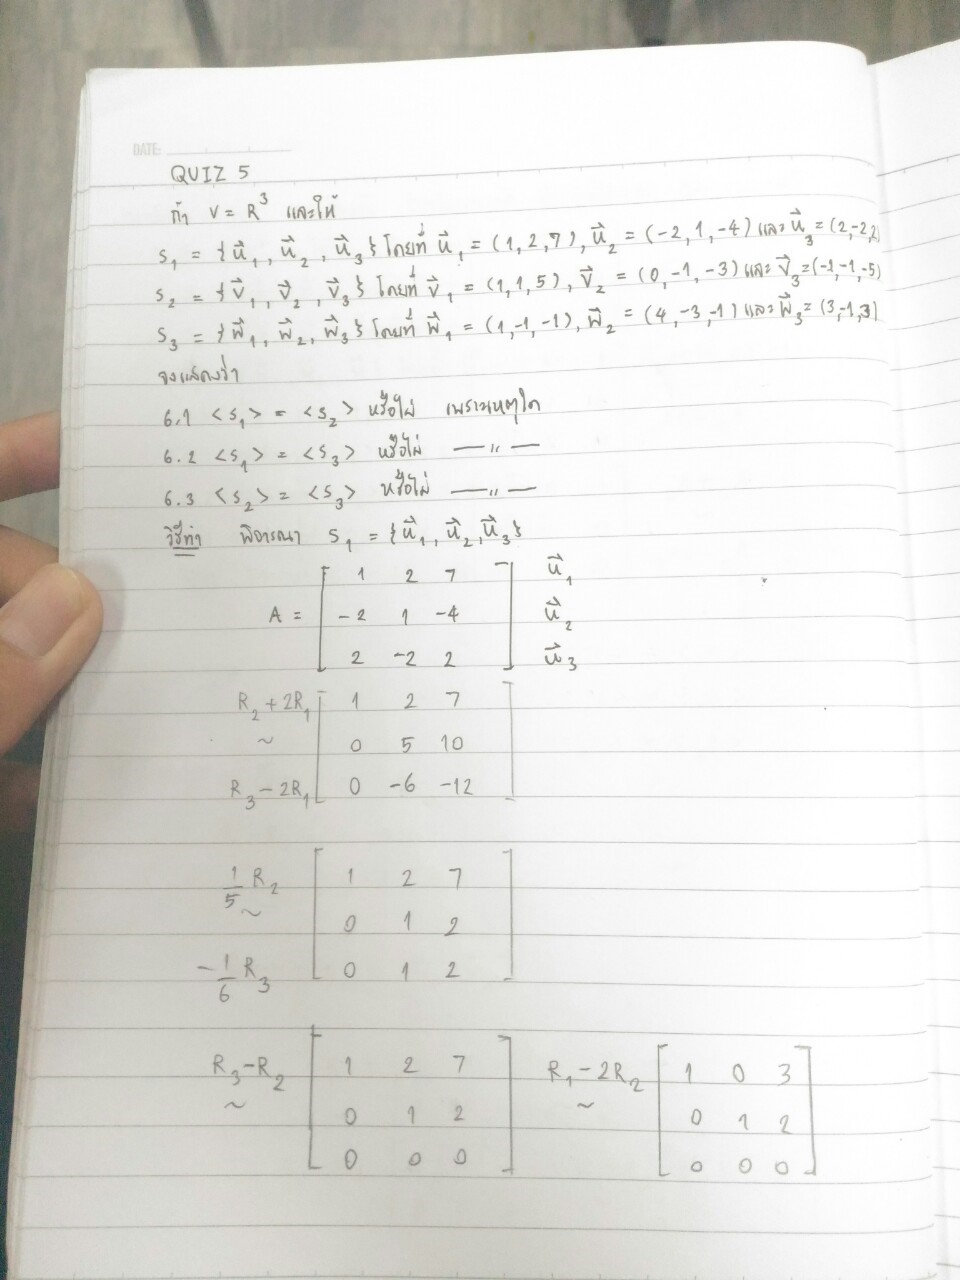 DATE:
QUIZ 5
ถ้า V = R³ และให้
S₁ = {u⃗₁, u⃗₂, u⃗₃} โดยที่ u⃗₁ = (1,2,7), u⃗₂ = (-2,1,-4) และ u⃗₃ = (2,-2,2)
S₂ = {v⃗₁, v⃗₂, v⃗₃} โดยที่ v⃗₁ = (1,1,5), v⃗₂ = (0,-1,-3) และ v⃗₃ = (-1,-1,-5)
S₃ = {w⃗₁, w⃗₂, w⃗₃} โดยที่ w⃗₁ = (1,-1,-1), w⃗₂ = (4,-3,-1) และ w⃗₃ = (3,-1,3)
จงแสดงว่า
6.1 <S₁> = <S₂> หรือไม่ เพราะเหตุใด
6.2 <S₁> = <S₃> หรือไม่ —〃—
6.3 <S₂> = <S₃> หรือไม่ —〃—
วิธีทำ พิจารณา S₁ = {u⃗₁, u⃗₂, u⃗₃}
1 2 7 u⃗₁
A = -2 1 -4 u⃗₂
2 -2 2 u⃗₃
R₂+2R₁ 1 2 7
~ 0 5 10
R₃-2R₁ 0 -6 -12
1/5 R₂ 1 2 7
~ 0 1 2
-1/6 R₃ 0 1 2
R₃-R₂ 1 2 7 R₁-2R₂ 1 0 3
~ 0 1 2 ~ 0 1 2
0 0 0 0 0 0